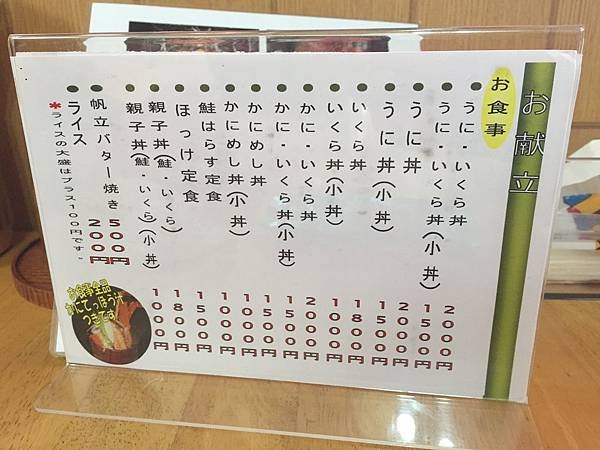 お献立
お食事
●うに・いくら丼 2000円
●うに・いくら丼(小丼) 1500円
●うに丼 2000円
●うに丼(小丼) 1500円
●いくら丼 1800円
●いくら丼(小丼) 1000円
●かに・いくら丼 2000円
●かに・いくら丼(小丼) 1500円
●かにめし丼 1500円
●かにめし丼(小丼) 1000円
●鮭はらす定食 1000円
●ほっけ定食 1500円
●親子丼(鮭・いくら) 1800円
●親子丼(鮭・いくら)(小丼) 1000円
●帆立バター焼き 500円
●ライス 200円
*ライスの大盛はプラス100円です。
お食事全品
かにてっぽう汁
つきです